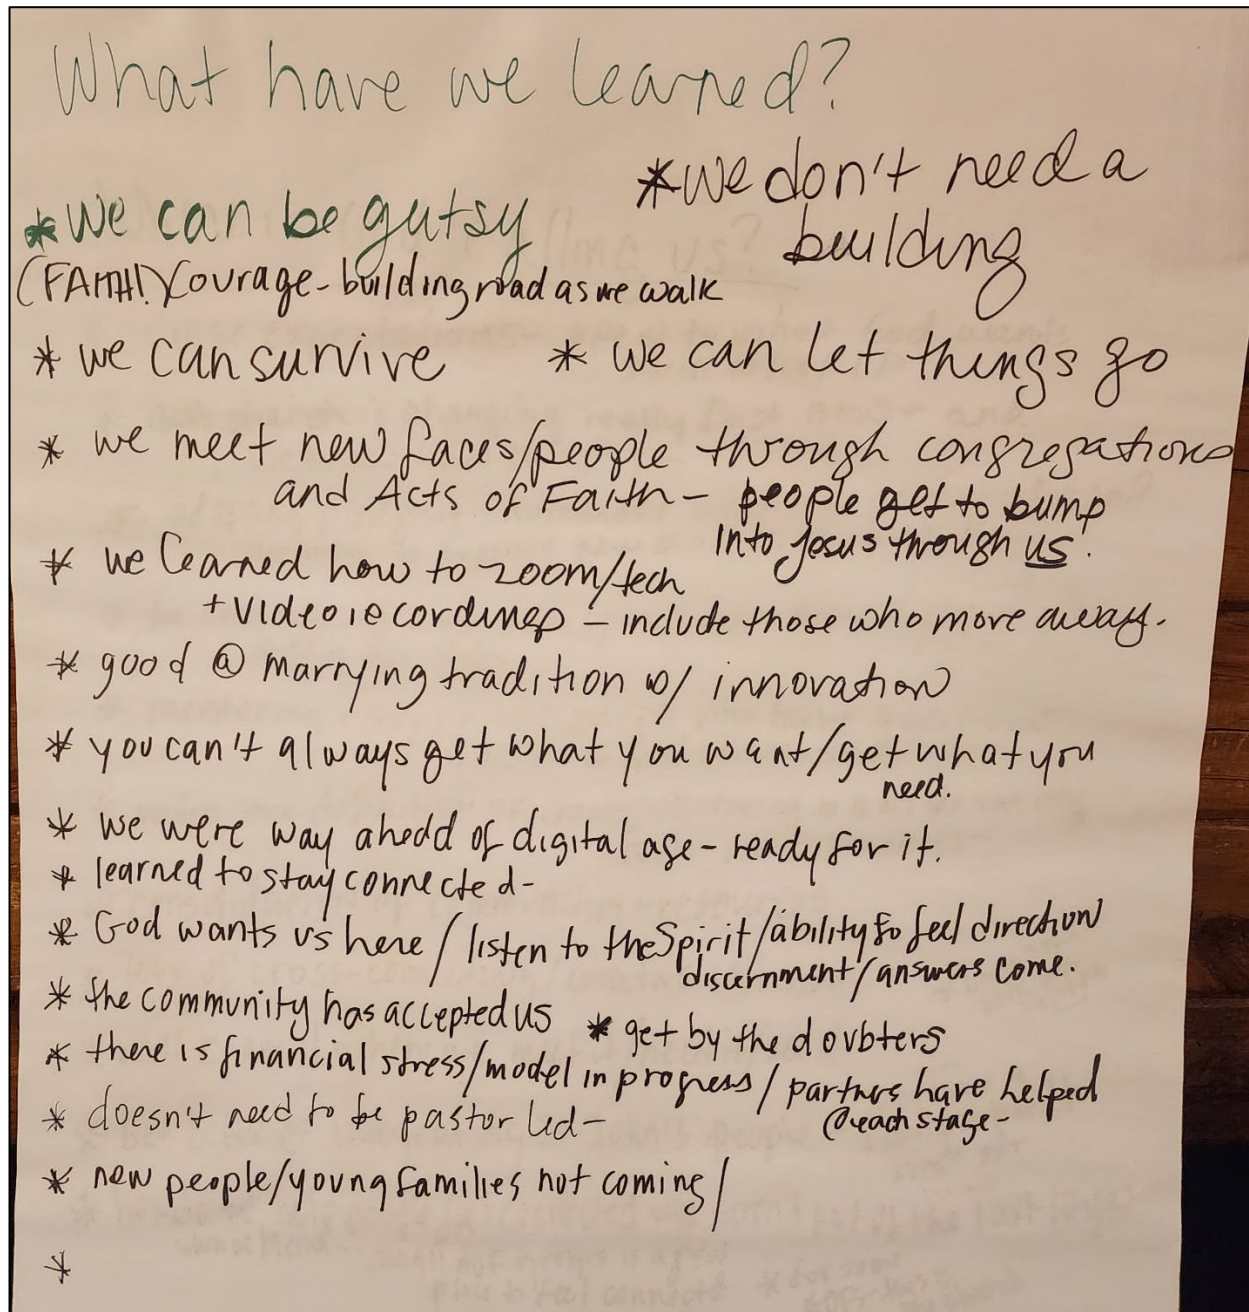 What have we learned?
* we don't need a
building
* we can be gutsy
(FAITH!) Courage - building road as we walk
* we can survive * we can let things go
* we meet new faces/people through congregations
and Acts of Faith - people get to bump
into Jesus through us.
* we learned how to zoom/tech
+ video recordings - include those who more away.
* good @ marrying tradition w/ innovation
* you can't always get what you want/get what you
need.
* we were way ahead of digital age - ready for it.
* learned to stay connected -
* God wants us here / listen to the Spirit/ability to feel direction
discernment/answers come.
* the community has accepted us * get by the doubters
* there is financial stress/model in progress/partners have helped
@ each stage -
* doesn't need to be pastor led -
* new people/young families not coming/
*